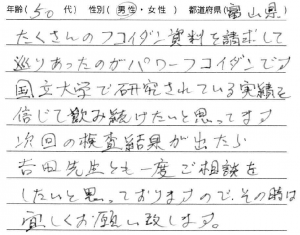 年齢（50 代） 性別（男性・女性） 都道府県（富山県
たくさんのフコイダン資料を請求して
巡りあったのがパワーフコイダンです
国立大学で研究されている実績を
信じて飲み続けたいと思ってます
次回の検査結果が出たら
吉田先生とも一度ご相談を
したいと思っておりますので、その時は
宜しくお願い致します。